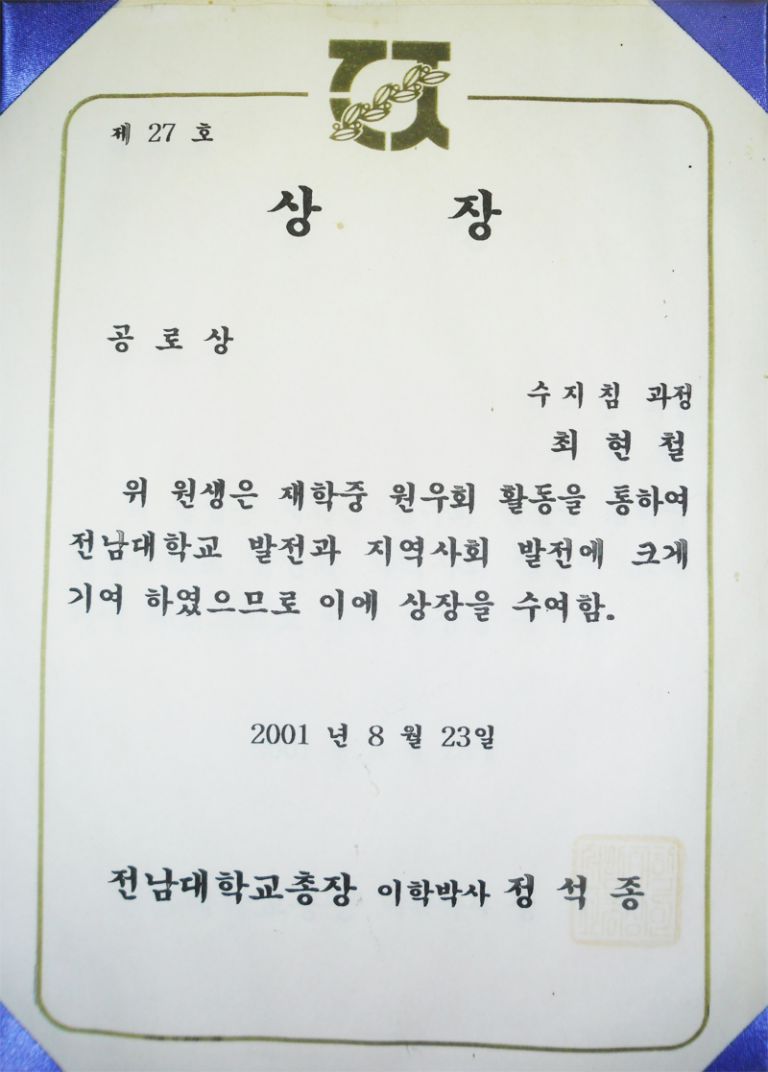 제 27 호
상 장
공 로 상
수 지 침 과정
최 현 철
위 원생은 재학중 원우회 활동을 통하여
전남대학교 발전과 지역사회 발전에 크게
기여 하였으므로 이에 상장을 수여함.
2001 년 8 월 23일
전남대학교총장 이학박사 정 석 종